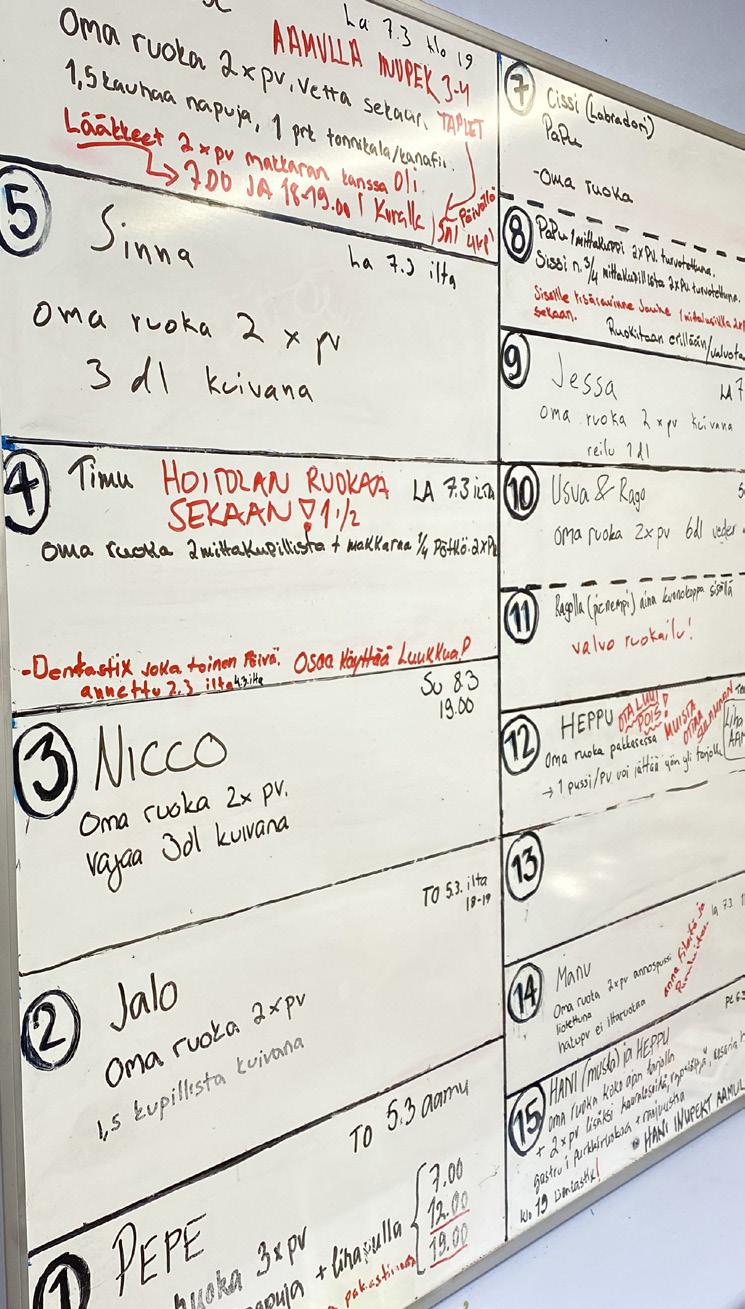 La 7.3 klo 19
AAMULLA INUPEK 3-4
TAPLET
Oma ruoka 2xpv, vettä sekaan,
1,5 kauhaa napuja, 1 prk tonnikala/kanafil.
Lääkkeet 2xpv makkaran kanssa
→ 7.00 JA 18-19.00!
Päivällä
5
Sinna
La 7.3 ilta
oma ruoka 2 x pv
3 dl kuivana
4
Timu HOITOLAN RUOKAA LA 7.3 ilta
SEKAAN! 1 1/2
oma ruoka 2 mittakupillista + makkaraa 1/4 pötkö 2xPv
-Dentastix joka toinen Päivä. Osaa Käyttää Luukkua!
annettu 2.3 ilta 4.3 ilta
3
NICCO
Su 8.3
19.00
Oma ruoka 2x pv.
vajaa 3dl kuivana
2
TO 5.3. ilta
18-19
Jalo
Oma ruoka 2xpv
1,5 kupillista kuivana
1
TO 5.3 aamu
PEPE
ruoka 3xpv
+ lihapulla
7.00
12.00
19.00
7
Cissi (Labradori)
Papu
-Oma ruoka
8
PaPu 1 mittakuppi 2xPv. turvotettuna.
Sissi n. 3/4 mittakupillista 2xPv turvotettuna.
Sissille lisäravinne Jauhe 1 mitalusikka 2x
sekaan.
Ruokitaan erillään/valvota
9
Jessa
LA 7
oma ruoka 2 xpv kuivana
reilu 1dl
10
Usva & Rago
oma ruoka 2xpv 6dl
11
Ragolla (pienempi) aina kuonokoppa sisällä
valvo ruokailu!
12
HEPPU OTA LUU POIS!
MUISTA OTTAA
Oma ruoka pakkasessa
→ 1 pussi/pv voi jättää yön yli tarjolle
13
14
Manu
la 7.3
Oma ruoka 2xpv annospussi
liotettuna
15
HANI (musta) ja HEPPU
oma ruoka koko ajan tarjolla
+ 2xpv lisäksi
gastro i purkkiruokaa +
klo 19 Dentastix!
HANI INUPEKT AAMUL